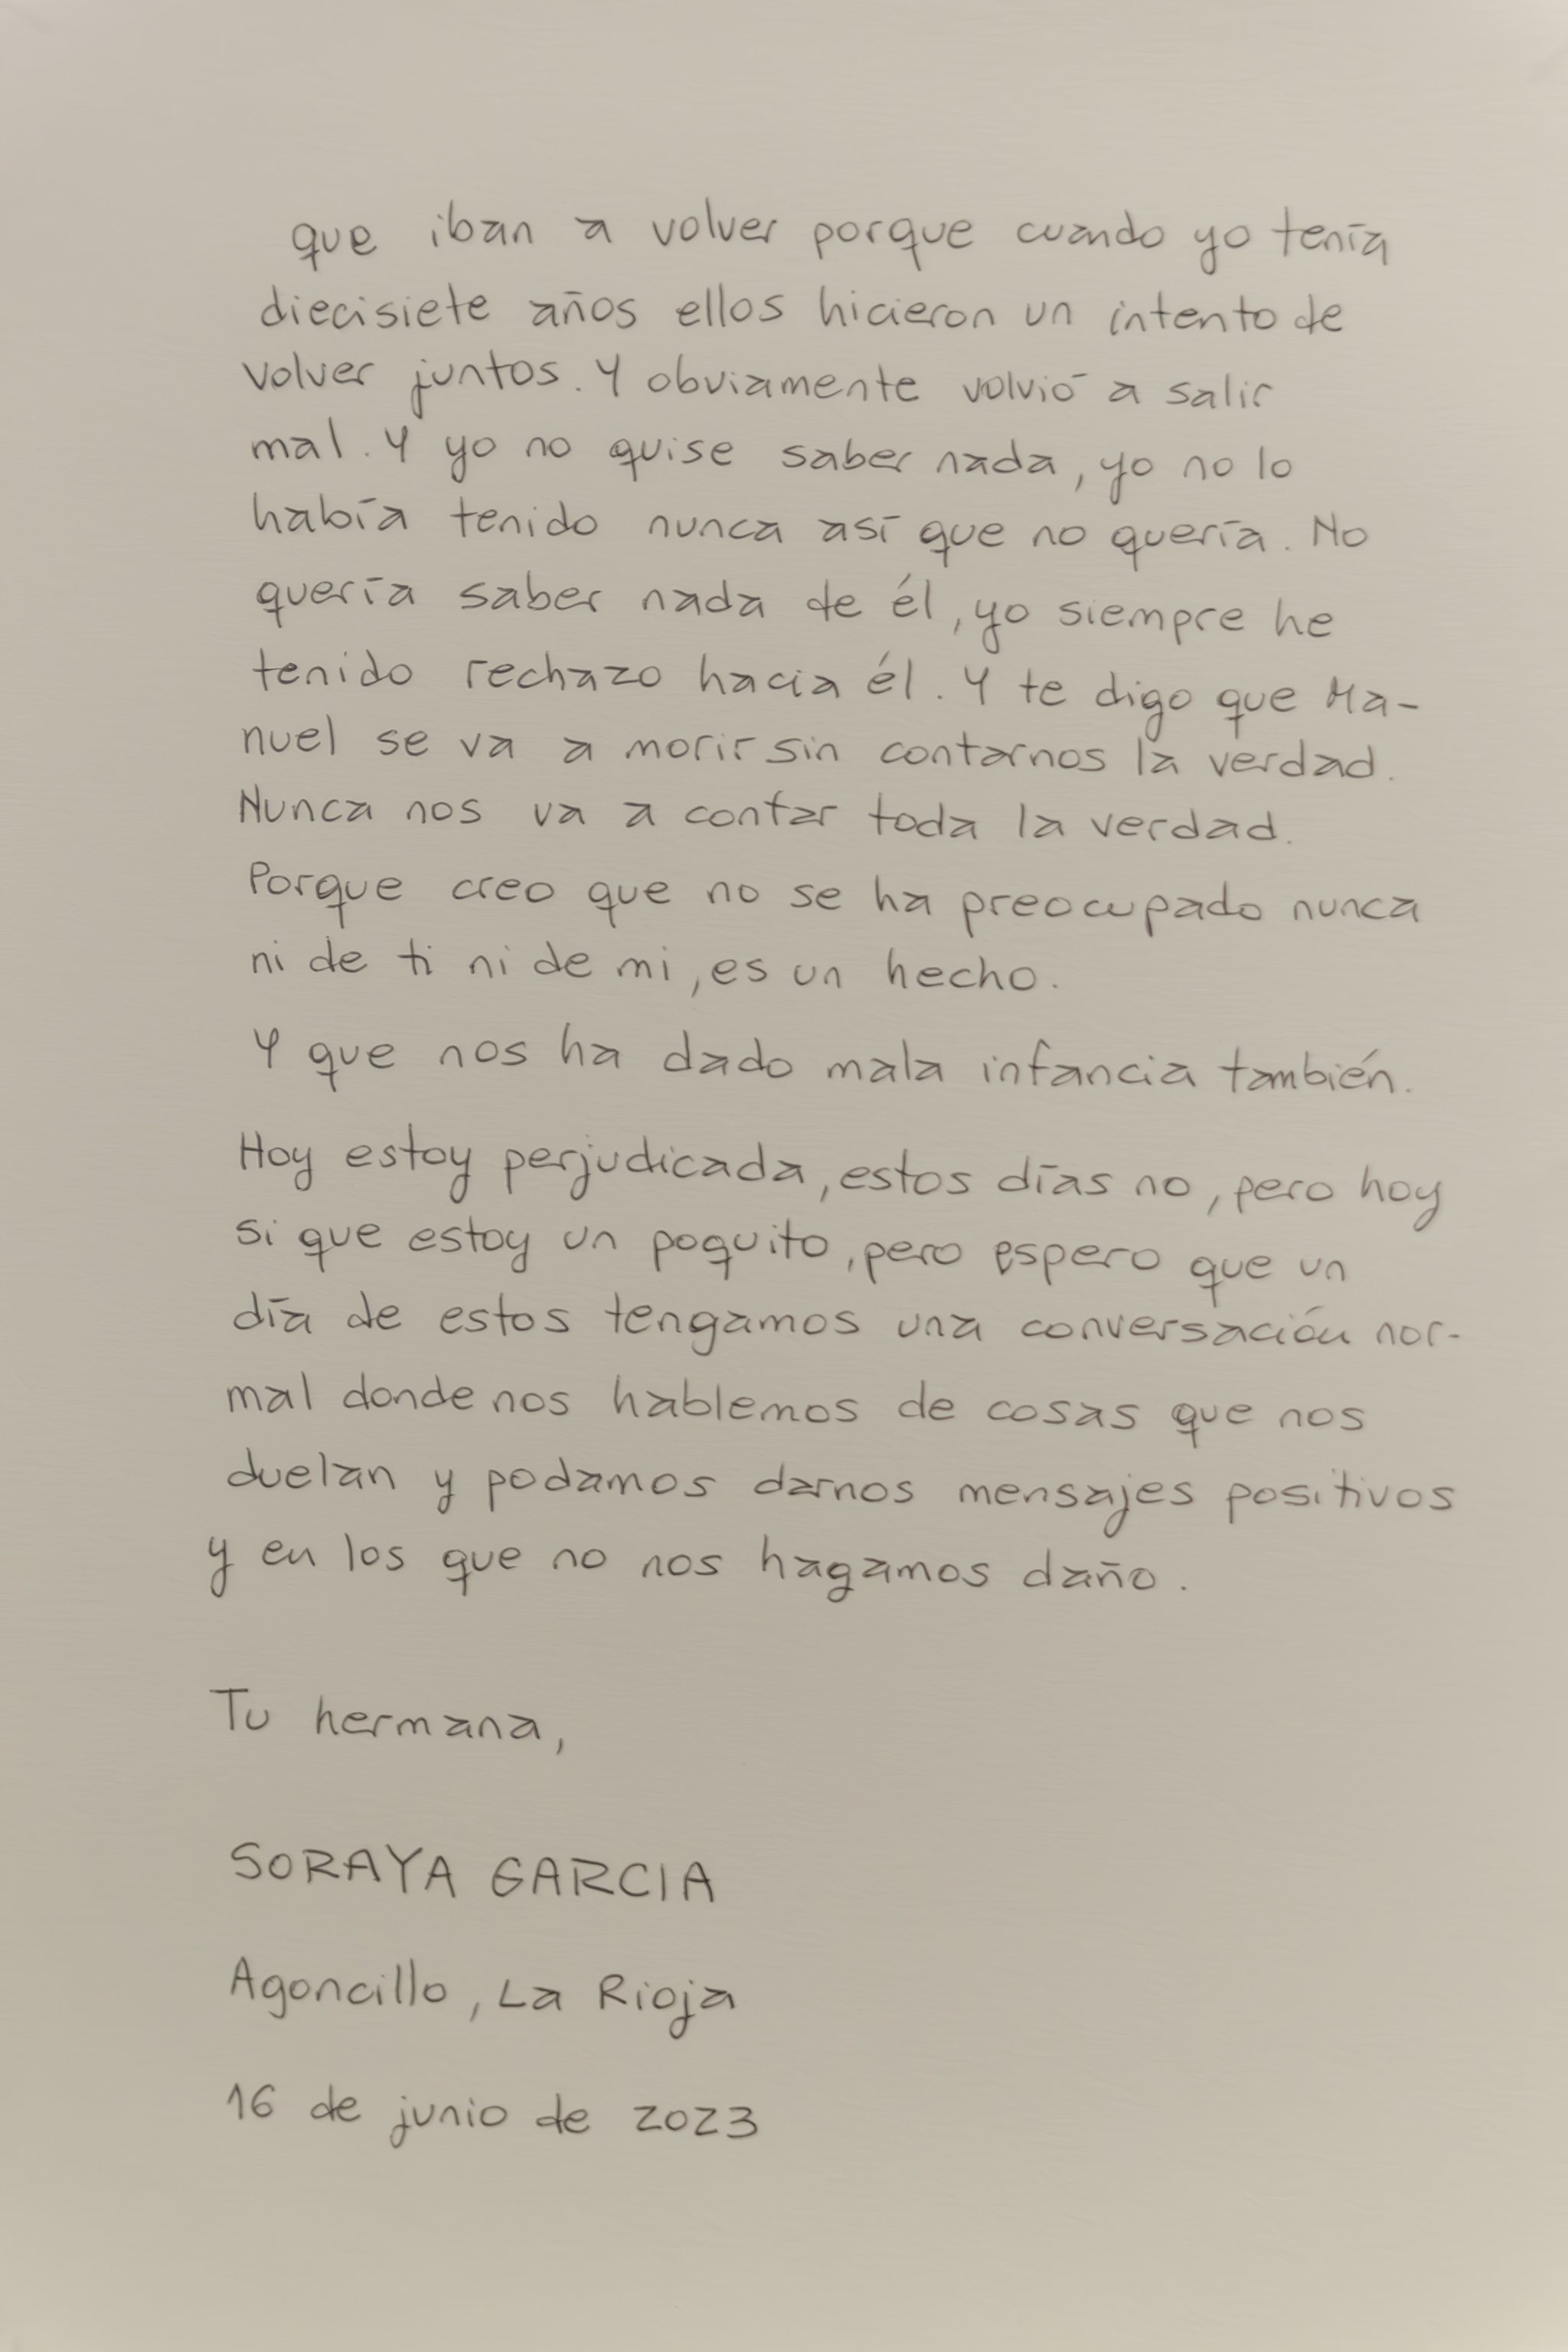 que iban a volver porque cuando yo tenía
diecisiete años ellos hicieron un intento de
volver juntos. Y obviamente volvió a salir
mal. Y yo no quise saber nada, yo no lo
había tenido nunca así que no quería. No
quería saber nada de él, yo siempre he
tenido rechazo hacia él. Y te digo que Ma-
nuel se va a morir sin contarnos la verdad.
Nunca nos va a contar toda la verdad.
Porque creo que no se ha preocupado nunca
ni de ti ni de mi, es un hecho.
Y que nos ha dado mala infancia también.
Hoy estoy perjudicada, estos días no, pero hoy
si que estoy un poquito, pero espero que un
día de estos tengamos una conversación nor-
mal donde nos hablemos de cosas que nos
duelan y podamos darnos mensajes positivos
y en los que no nos hagamos daño.
Tu hermana,
SORAYA GARCIA
Agoncillo, La Rioja
16 de junio de 2023